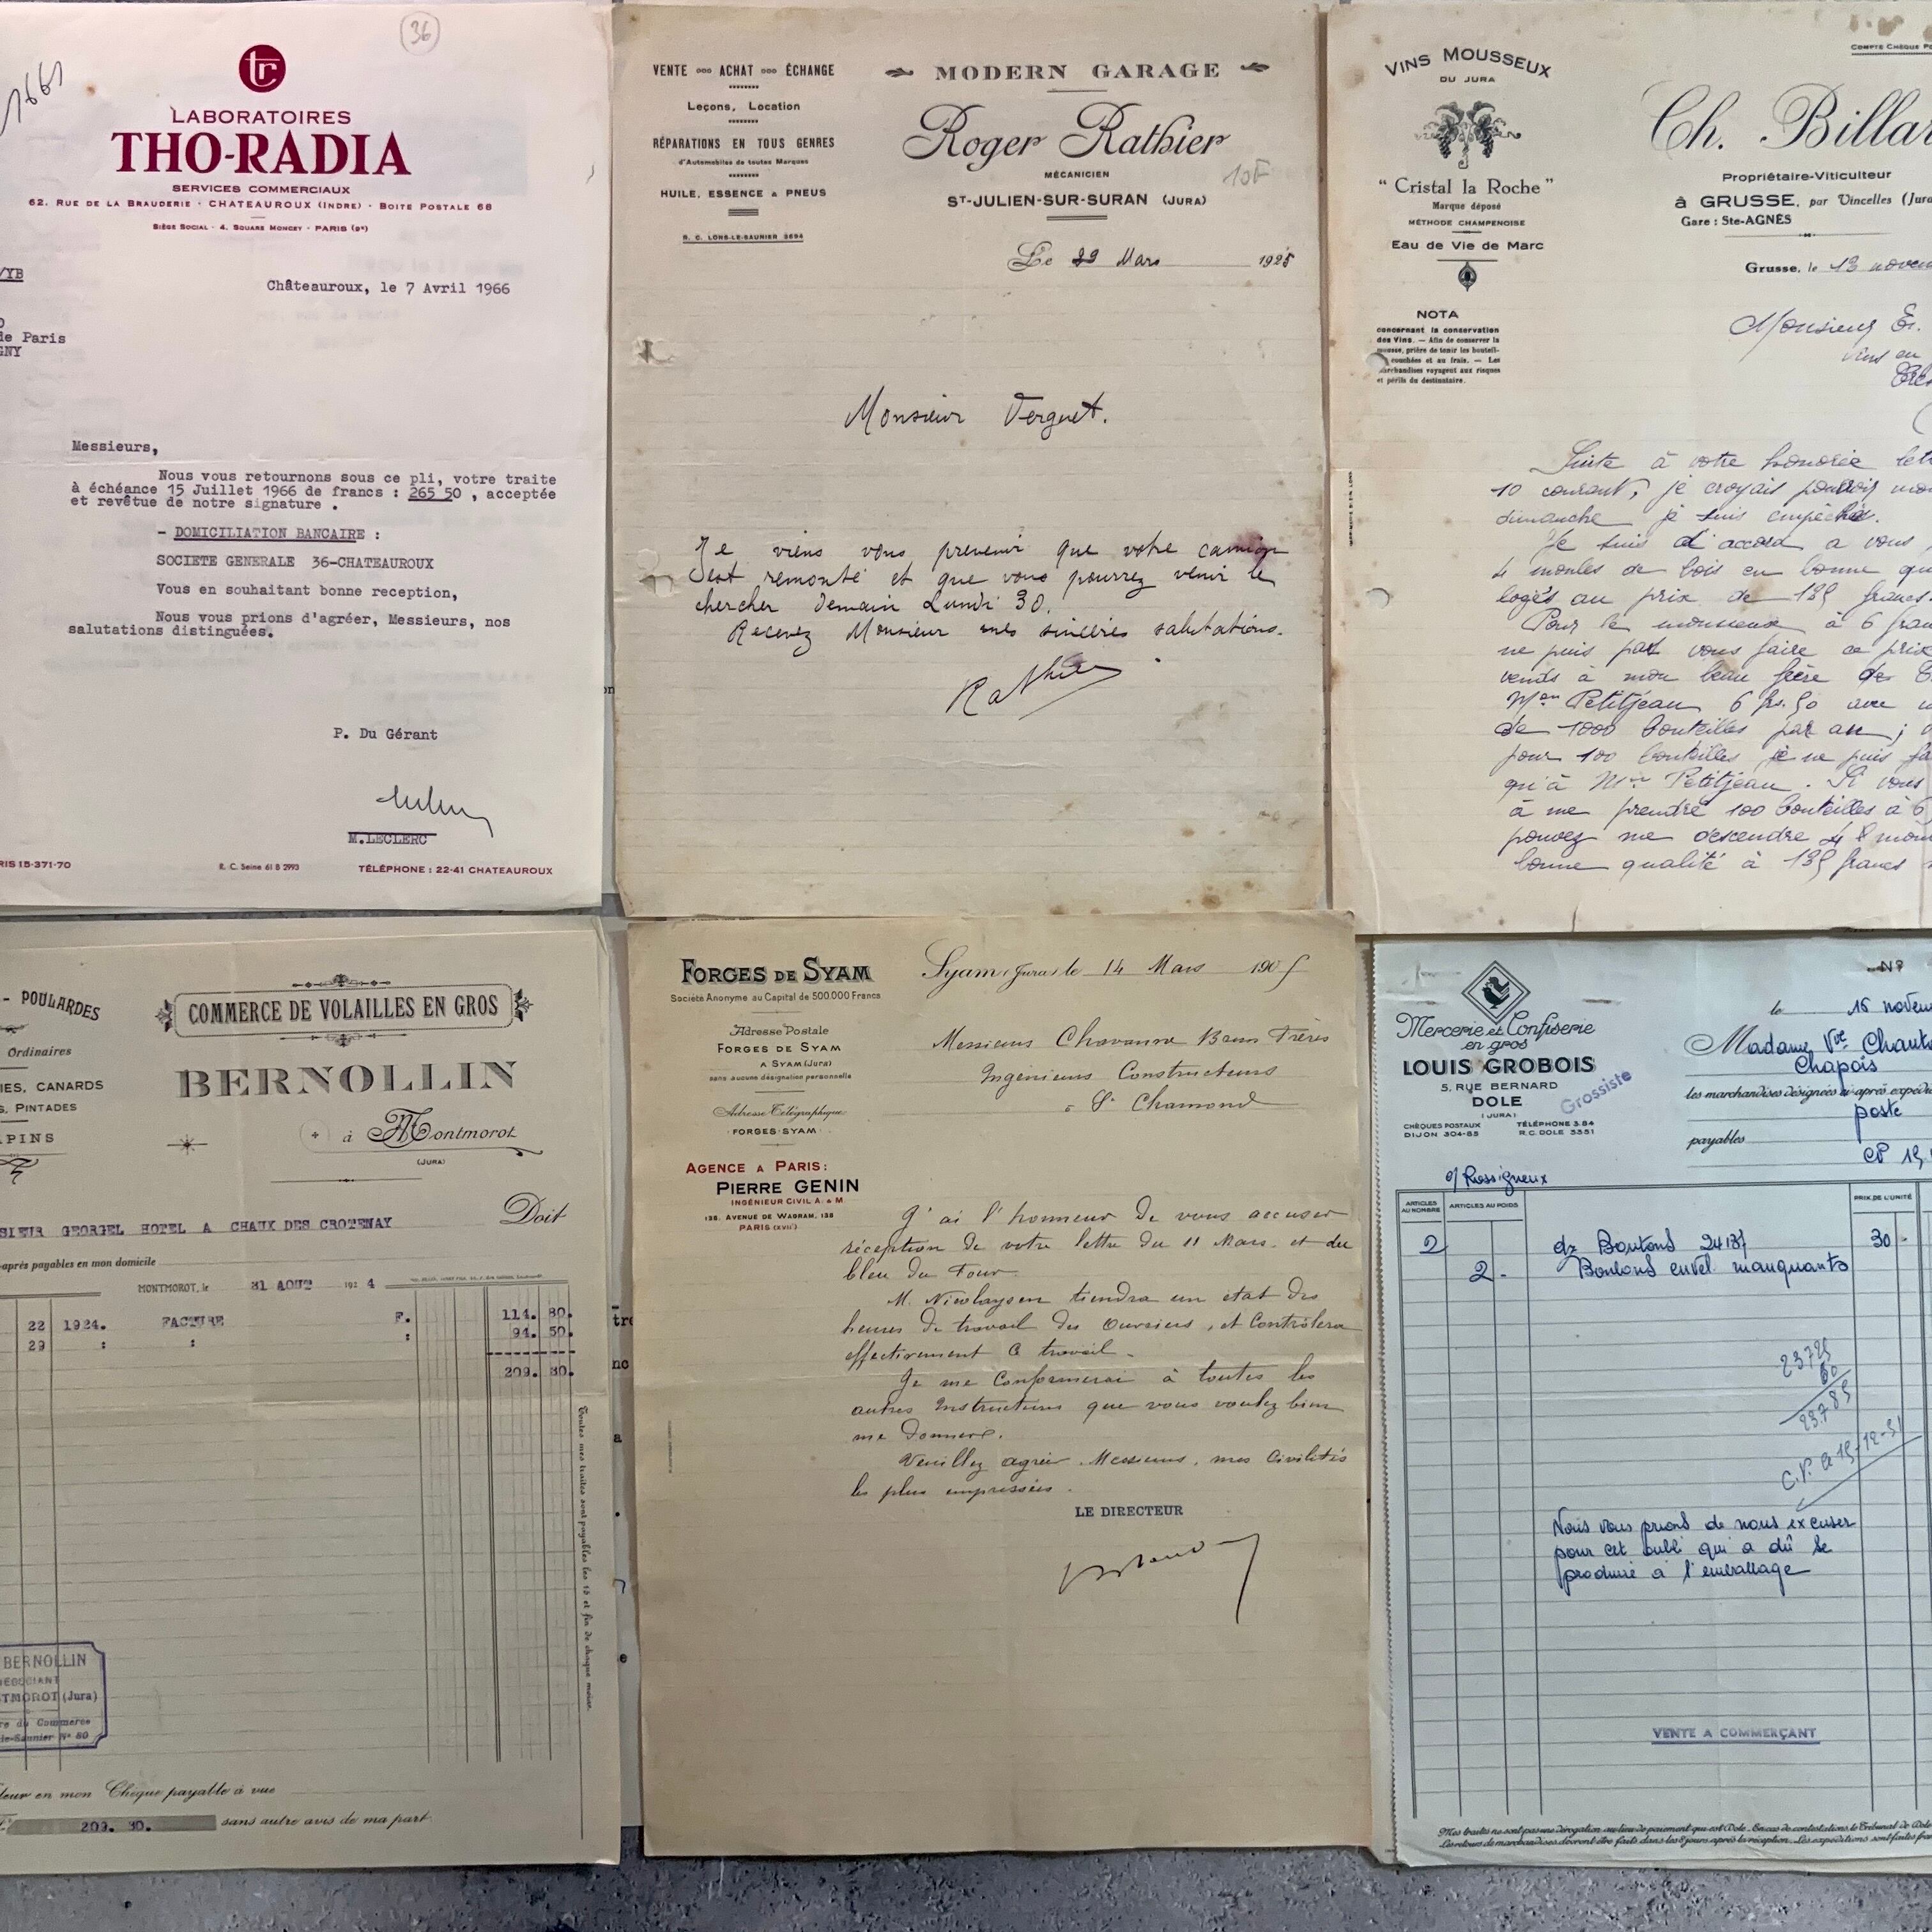 36
tr
LABORATOIRES
THO-RADIA
SERVICES COMMERCIAUX
62. RUE DE LA BRAUDERIE · CHATEAUROUX (INDRE) · BOITE POSTALE 68
SIÈGE SOCIAL · 4, SQUARE MONCEY · PARIS (9e)
/YB
Châteauroux, le 7 Avril 1966
de Paris
GNY
Messieurs,
Nous vous retournons sous ce pli, votre traite
à échéance 15 Juillet 1966 de francs : 265 50 , acceptée
et revêtue de notre signature .
- DOMICILIATION BANCAIRE :
SOCIETE GENERALE 36-CHATEAUROUX
Vous en souhaitant bonne reception,
Nous vous prions d'agréer, Messieurs, nos
salutations distinguées.
P. Du Gérant
M.LECLERC
RIS 15-371-70
R. C. Seine 61 B 2993
TÉLÉPHONE : 22-41 CHATEAUROUX
VENTE ACHAT ÉCHANGE
Leçons, Location
RÉPARATIONS EN TOUS GENRES
d'Automobiles de toutes Marques
HUILE, ESSENCE & PNEUS
R. C. LONS-LE-SAUNIER 3694
MODERN GARAGE
Roger Rathier
MÉCANICIEN
10F
ST-JULIEN-SUR-SURAN (JURA)
Le 29 Mars 1925
Monsieur Verguet.
Je viens vous prevenir que votre camion
est remonté et que vous pourrez venir le
chercher demain Lundi 30.
Recevez Monsieur mes sincères salutations.
Rathier
VINS MOUSSEUX
DU JURA
"Cristal la Roche"
Marque déposé
MÉTHODE CHAMPENOISE
Eau de Vie de Marc
NOTA
concernant la conservation
des Vins. — Afin de conserver la
mousse, prière de tenir les bouteil-
couchées et au frais. — Les
marchandises voyagent aux risques
et périls du destinataire.
COMPTE CHÈQUE PO
Ch. Billar
Propriétaire-Viticulteur
à GRUSSE, par Vincelles (Jura
Gare : Ste-AGNÈS
Grusse, le 13 novem
Monsieur E.
vins en
Suite à votre honorée lett
10 courant, je croyais pouvoir mon
dimanche je suis empêché.
Je suis d'accord a vous
4 moules de bois en bonne qu
logés au prix de 135 francs.
Pour le mousseux à 6 fran
ne puis pas vous faire ce prix
vends à mon beau frère de
Mon Petitjean 6 frs. 50 avec
de 1000 bouteilles par an ;
pour 100 bouteilles je ne puis fa
qu'à Mr Petitjean. Si vous
à me prendre 100 bouteilles à 6
pouvez me descendre 4 moul
bonne qualité à 135 francs
- POULARDES
Ordinaires
IES, CANARDS
S, PINTADES
PINS
COMMERCE DE VOLAILLES EN GROS
BERNOLLIN
à Montmorot
(JURA)
Doit
SIEUR GEORGEL HOTEL A CHAUX DES CROTENAY
-après payables en mon domicile
MONTMOROT, le 31 AOUT 1924
22 1924. FACTURE F. 114. 80.
29 : : : 94. 50.
209. 30.
Toutes mes traites sont payables les 15 et fin de chaque mois.
BERNOLLIN
NÉGOCIANT
MONTMOROT (Jura)
re du Commerce
le-Saunier N° 80
leur en mon Chèque payable à vue
209. 30. sans autre avis de ma part.
FORGES DE SYAM
Société Anonyme au Capital de 500.000 Francs
Adresse Postale
FORGES DE SYAM
A SYAM (Jura)
sans aucune désignation personnelle
Adresse Télégraphique
FORGES-SYAM
AGENCE A PARIS:
PIERRE GENIN
INGÉNIEUR CIVIL A. & M
138, AVENUE DE WAGRAM, 138
PARIS (XVIIe)
Syam (Jura) le 14 Mars 1905
Messieurs Chavanne Brun Frères
Ingénieurs Constructeurs
à St Chamond
J'ai l'honneur de vous accuser
réception de votre lettre du 11 Mars et du
bleu du Four.
M. Nicolaysen tiendra un état des
heures de travail des ouvriers, et contrôlera
effectivement ce travail.
Je me conformerai à toutes les
autres instructions que vous voulez bien
me donner.
Veuillez agréer, Messieurs, mes civilités
les plus empressées.
LE DIRECTEUR
Mercerie et Confiserie
en gros
LOUIS GROBOIS
5, RUE BERNARD
DOLE
(JURA)
CHÈQUES POSTAUX
DIJON 304-85
TÉLÉPHONE 3.84
R.C. DOLE 3351
Grossiste
N°
le 16 novem
Madame Vve Chant
Chapois
les marchandises désignées ci-après expédi
poste
payables
CP 15
o/ Rossigneux
ARTICLES AU NOMBRE
ARTICLES AU POIDS
PRIX DE L'UNITÉ
2 dz Boutons 30 -
2 - Boutons envel. manquants
23725
60
23785
C.P. le 15-12-51
Nous vous prions de nous excuser
pour cet oubli qui a dû se
produire à l'emballage
VENTE A COMMERÇANT
Mes traites ne sont pas une dérogation au lieu de paiement qui est Dole. En cas de contestations le Tribunal de Dole
Les retours de marchandises devront être faits dans les 8 jours après la réception. Les expéditions sont faites fran